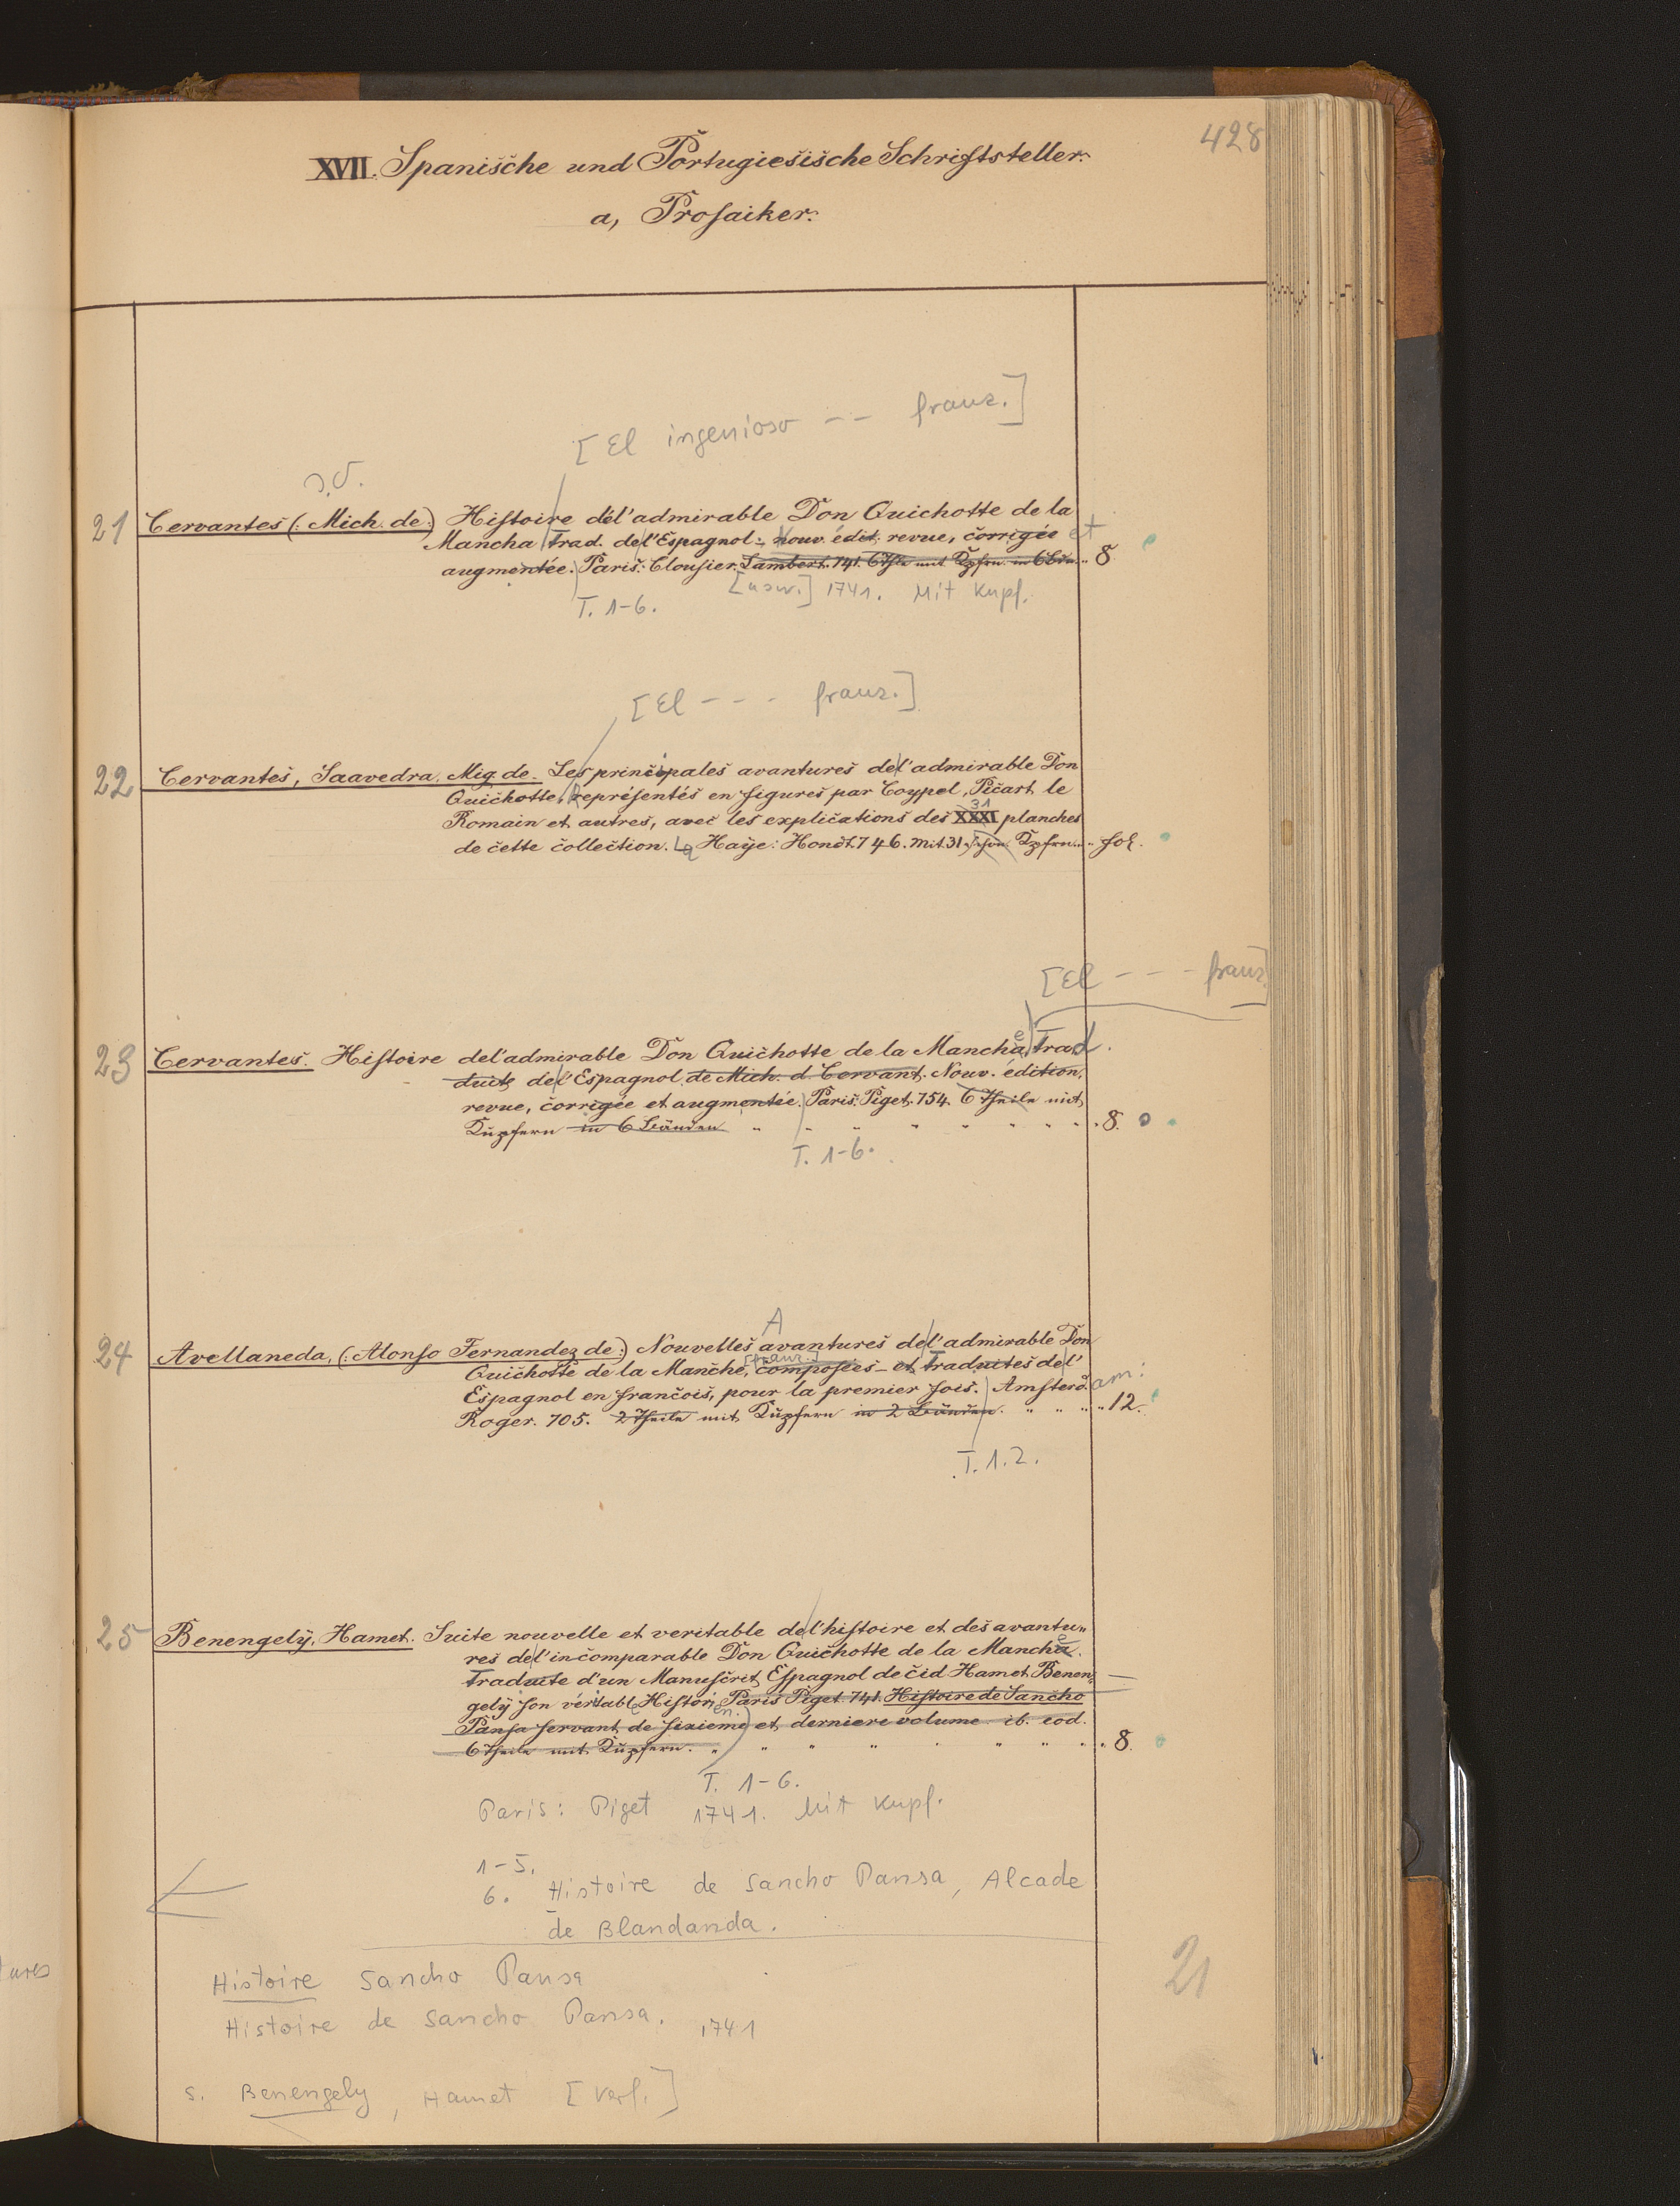 428
XVII. Spanische und Portugiesische Schriftsteller.
a, Prosaiker.
[El ingenioso -- franz.]
s.d.
21 Cervantes (: Mich. de:) Histoire de l'admirable Don Quichotte de la
Mancha trad. de l'Espagnol: nouv. édit, revue, corrigée et
augmentée. Paris: Clousier. Lambert. 741. 6 Thle mit Kpfrn. in 6 Bdn. 8
[usw.] 1741. Mit Kupf.
T. 1-6.
[El - - - franz.]
22 Cervantes, Saavedra, Mig. de. Les principales avantures de l'admirable Don
Quichotte, représentés en figures par Coypel, Picart le
31
Romain et autres, avec les explications des XXXI planches
de cette collection. La Haÿe: Hondt. 746. mit 31 schön. Kpfrn. fol.
[El - - - franz.]
23 Cervantes. Histoire de l'admirable Don Quichotte de la Manchae, trad.
duite de l'Espagnol de Mich. d. Cervant. Nouv. édition,
revue, corrigée et augmentée. Paris: Piget. 754. 6 Theile mit
Kupfern in 6 Bänden 8.
T. 1-6.
A
24 Avellaneda, (: Alonso Fernandez de:) Nouvelles avantures de l'admirable Don
[franz.]
Quichotte de la Manche, composées et traduites de l'
Espagnol en françois, pour la premier fois. Amsterd.am:
Roger. 705. 2 Theile mit Kupfern in 2 Bänden. 12.
T. 1.2.
25 Benengelÿ, Hamet. Suite nouvelle et veritable de l'histoire et des avantu„
res de l'incomparable Don Quichotte de la Manchae.
Traduite d'un Manuscrit Espagnol de Cid Hamet Benen„
gelÿ son véritable Historien. Paris Piget. 741. Histoire de Sancho
Pansa servant de sixieme et derniere volume ib. eod.
6 Theile mit Kupfern. 8.
T. 1-6.
Paris: Piget 1741. Mit Kupf.
1-5.
6. Histoire de Sancho Pansa, Alcade
de Blandanda.
tures
Histoire Sancho Pansa
Histoire de Sancho Pansa. 1741
21
s. Benengely, Hamet [Verf.]